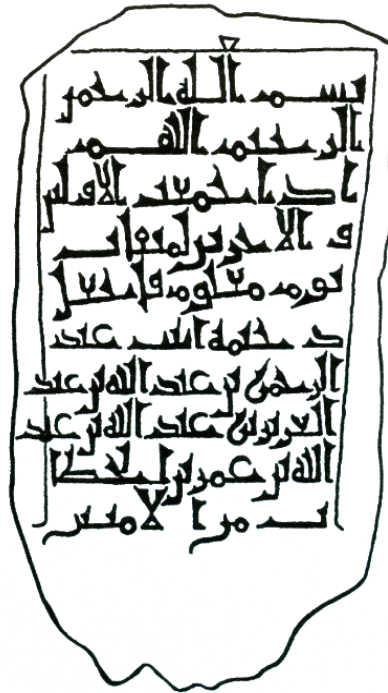 بسم الله الرحمن
الرحيم اللهم
اذا جمعت الاولين
و الاخرين لميقات
يوم معلوم فاجعل
رحمة ابنت عبد
الرحمن بن عبد الله بن عبد
العزيز بن عبد الله بن عبد
الله بن عمر بن الخطا
ب من الامنين